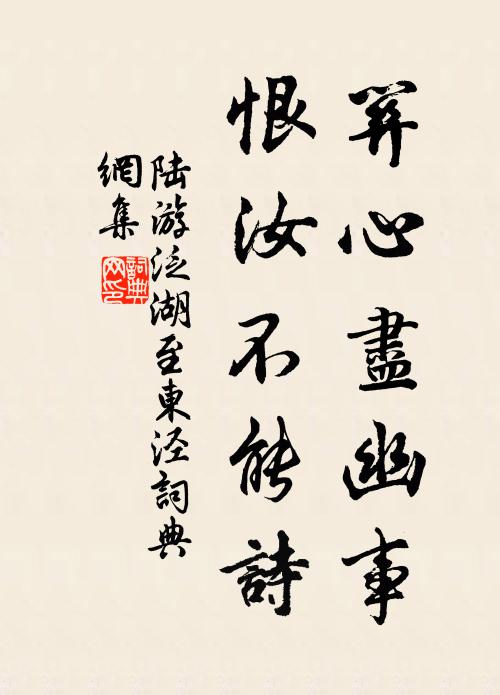 關心盡幽事
恨汝不能詩
陸游泛湖至東涇詞典
網集
詞典
网印